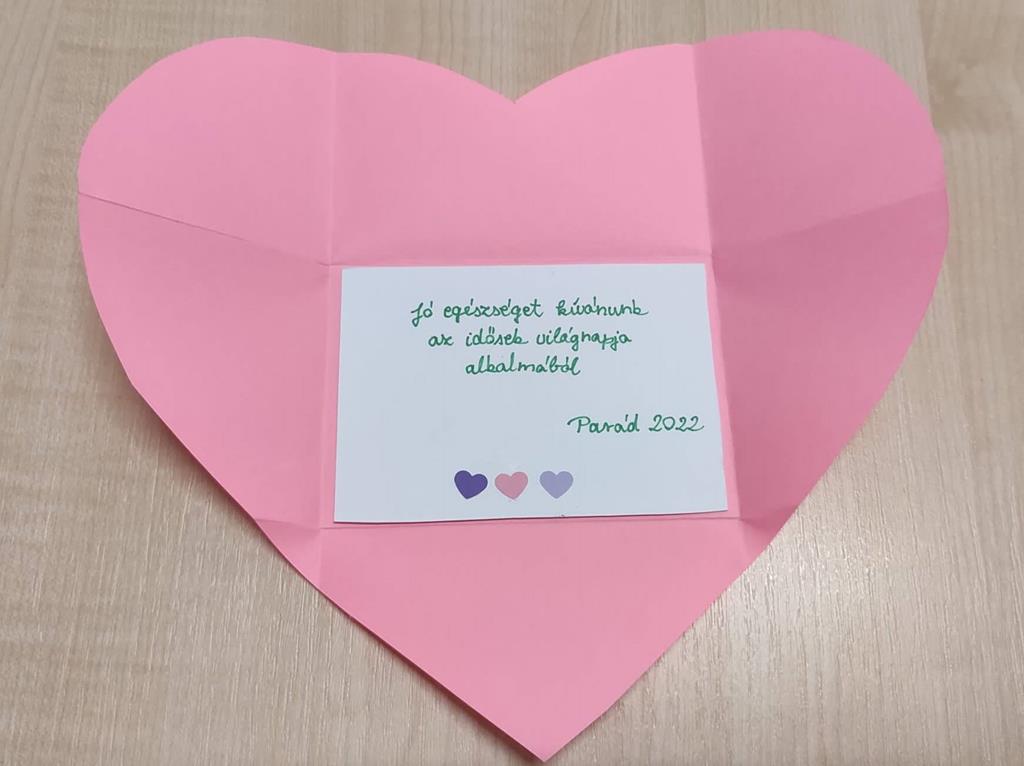 Jó egészséget kívánunk
az idősek világnapja
alkalmából
Parád 2022